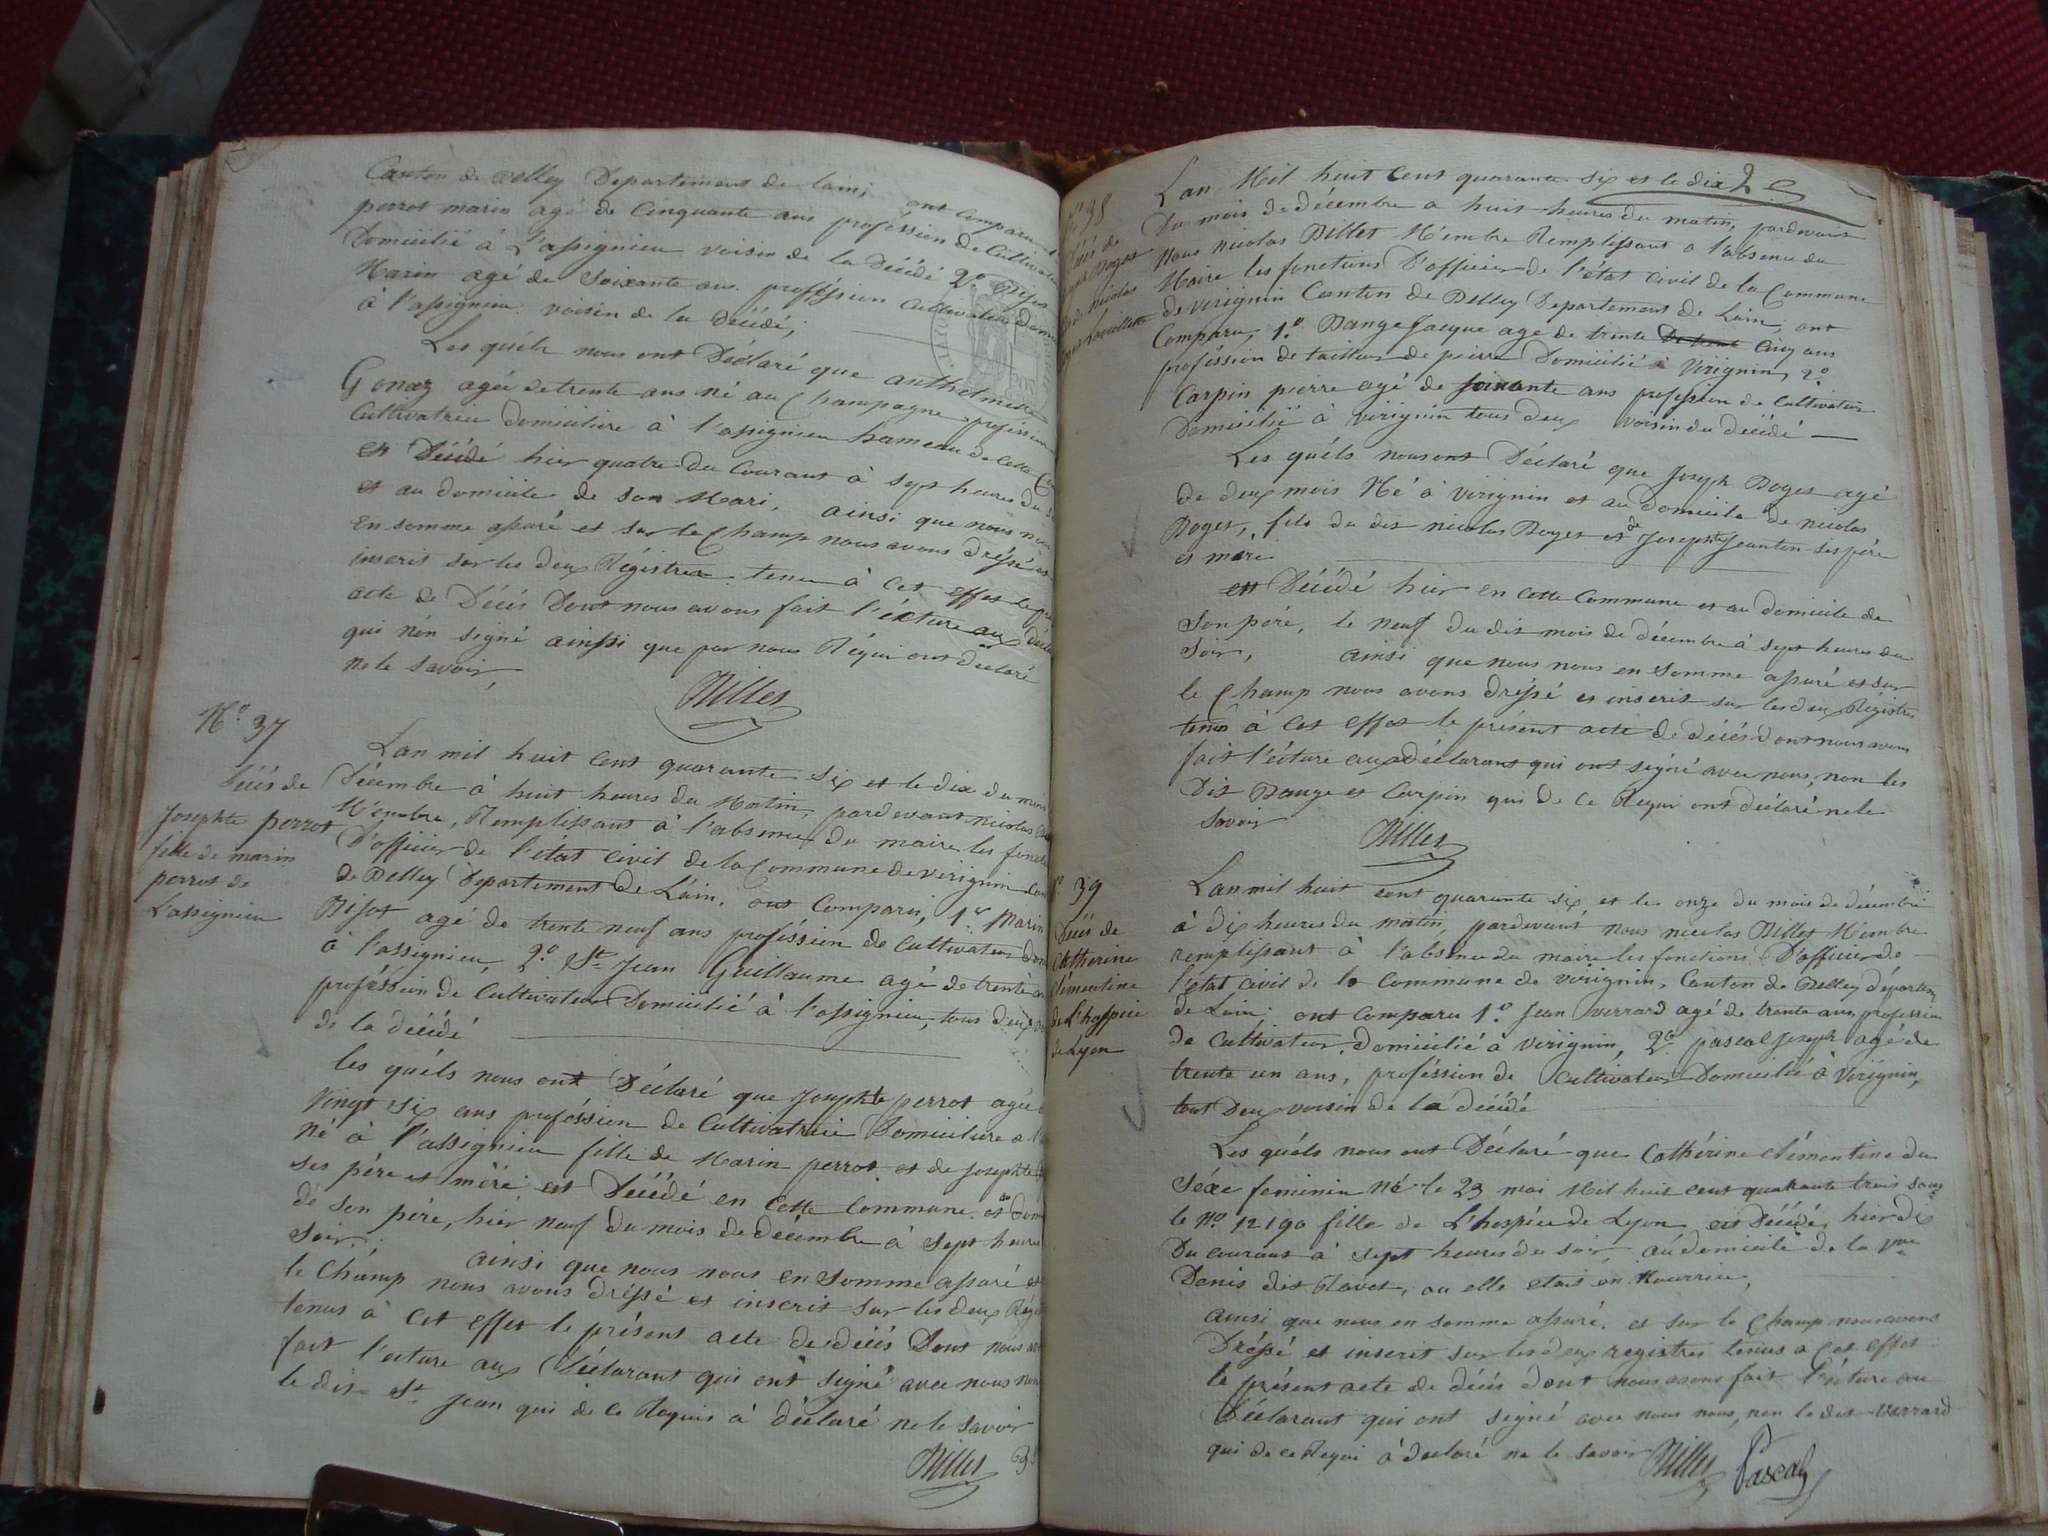 Canton de Belley Departement de Lain; ont comparu 1º
perrot marin agé de Cinquante ans proféssion de Cultivateur
Domicilié à L'assignieu voisin de la Décédé 2º
Marin agé de Soixante ans proféssion cultivateur
à l'assignieu voisin de la Décédé,
Les quéls nous ont Déclaré que anthelmette
Gonaz agée de trente ans né au Champagne proféssion
Cultivatrice domiciliere à l'assignieu hameau de cette
est Décédé hier quatre du Courant à sept heures du
et au domicile de son Mari, ainsi que nous nous
en somme assuré et sur le Champ nous avons dréssé et
inscrit sur les deux Régistres tenu à cet effet le
acte de Décés Dont nous avons fait l'écture aux
qui nén signé ainssi que par nous Réqui ont déclaré
ne le savoir,
Billet
Nº 37
Décés de
Josephte perrot
fille de marin
perrot de
L'assignieu
Lan mil huit cent quarante six et le dix du mois
Décembre à huit heures du Matin, pardevant nicolas
Membre, Remplissant à l'absence du maire les
D'officier de l'état civil de la Commune de virignin
de Belley Departement de Lain, ont Comparu, 1er Marin
Bijot agé de trente neuf ans proféssion de cultivateur
à l'assignieu, 2º St Jean Guillaume agé de trente
proféssion de Cultivateur Domicilié à l'assignieu, tous deux
de la décédé
les quéls nous ont Déclaré que Josephte perrot agée
vingt six ans proféssion de Cultivatrice Domiciliere a
né à l'assignieu fille de Marin perrot et de Josephte
ses pére et mére est Décédé en cette Commune et au
de son pére, hier neuf du mois de décembre à sept heures
soir, ainsi que nous nous en somme assuré et
le Champ nous avons dréssé et inscrit sur les deux
tenus à cet effet le présent acte de décés Dont nous
fait l'ecture aux Déclarant qui ont signé avec nous non
le dit St Jean qui de ce Requis à déclaré ne le savoir
Billet
nº 38
Décés de
Boget
de Nicolas
Lan Mil huit Cent quarante six et le dix
Du mois de décembre a huit heures du matin, pardevant
Nous nicolas Billet Membre Remplissant a l'absence du
Maire les fonctions D'officier de l'état Civil de la Commune
de virignin Canton de Belley Departement de Lain, ont
Comparu, 1º Dange Jacque age de trente Cinq ans
proféssion de tailleur de pierre Domicilié à Virignin, 2º
Carpin pierre agé de soixante ans profession de Cultivateur
Domicilié à virignin tous deux voisin du décédé
Les quéls nous ont Déclaré que Joseph Boget agé
de deux mois Né à virignin et au domicile de nicolas
Boget, fils du dit nicolas Boget et de Josephte Jeanton ses pére
et mére
est Décédé hier en cette Commune et au domicile de
Son pére, le neuf du dit mois de décembre à sept heures du
Soir, ainsi que nous nous en somme assuré et sur
le Champ nous avons dréssé et inscrit sur les deux Régistres
tenus à cet effet le présent acte de décés dont nous avons
fait l'écture aux déclarant qui ont signé avec nous, non les
Dit Dange et Carpin qui de Ce Requi ont déclaré ne le
Savoir
Billet
nº 39
Décés de
Catherine
Clémentine
de L'hospice
de Lyon
Lan mil huit cent quarante six et le onze du mois de décembre
à dix heures du matin, pardevant nous nicolas Billet Membre
remplissant à l'absence du maire les fonctions D'officier de
l'état civil de la Commune de virignin, Canton de Belley départem
de Lain, ont Comparu 1º Jean verrard agé de trente ans, profession
de Cultivateur, domicilié à virignin, 2º pascal Joseph agé de
trente un ans, proféssion de Cultivateur Domicilié à Virignin,
tout Deux voisin de la décédé
Les quéls nous ont Déclaré que Cathérine clémentine du
Séxe feminin né le 23 mai Mil huit cent quarante trois sous
le nº 12190 fille de L'hospice de Lyon est Décédé, hier dix
Du courant à sept heures du soir au domicile de la Vve
Denis dit Ravet, ou elle etait én Nourrice,
ainsi que nous en somme assuré, et sur le Champ nous avons
Dréssé et inscrit sur les deux registres tenus a cet effet
le présent acte de décés dont nous avons fait l'écture au
Déclarant qui ont signé avec nous nous, non le dit verrard
qui de ce Requi à declaré ne le savoir Billet Pascal